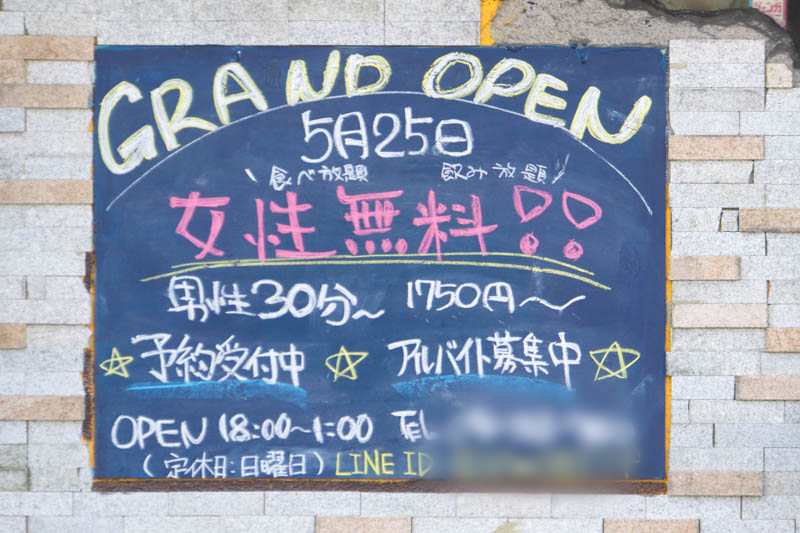 GRAND OPEN
5月25日
食べ放題 飲み放題
女性無料!!
男性30分~ 1750円~
☆予約受付中☆ アルバイト募集中☆
OPEN 18:00~1:00 TEL
(定休日:日曜日) LINE ID